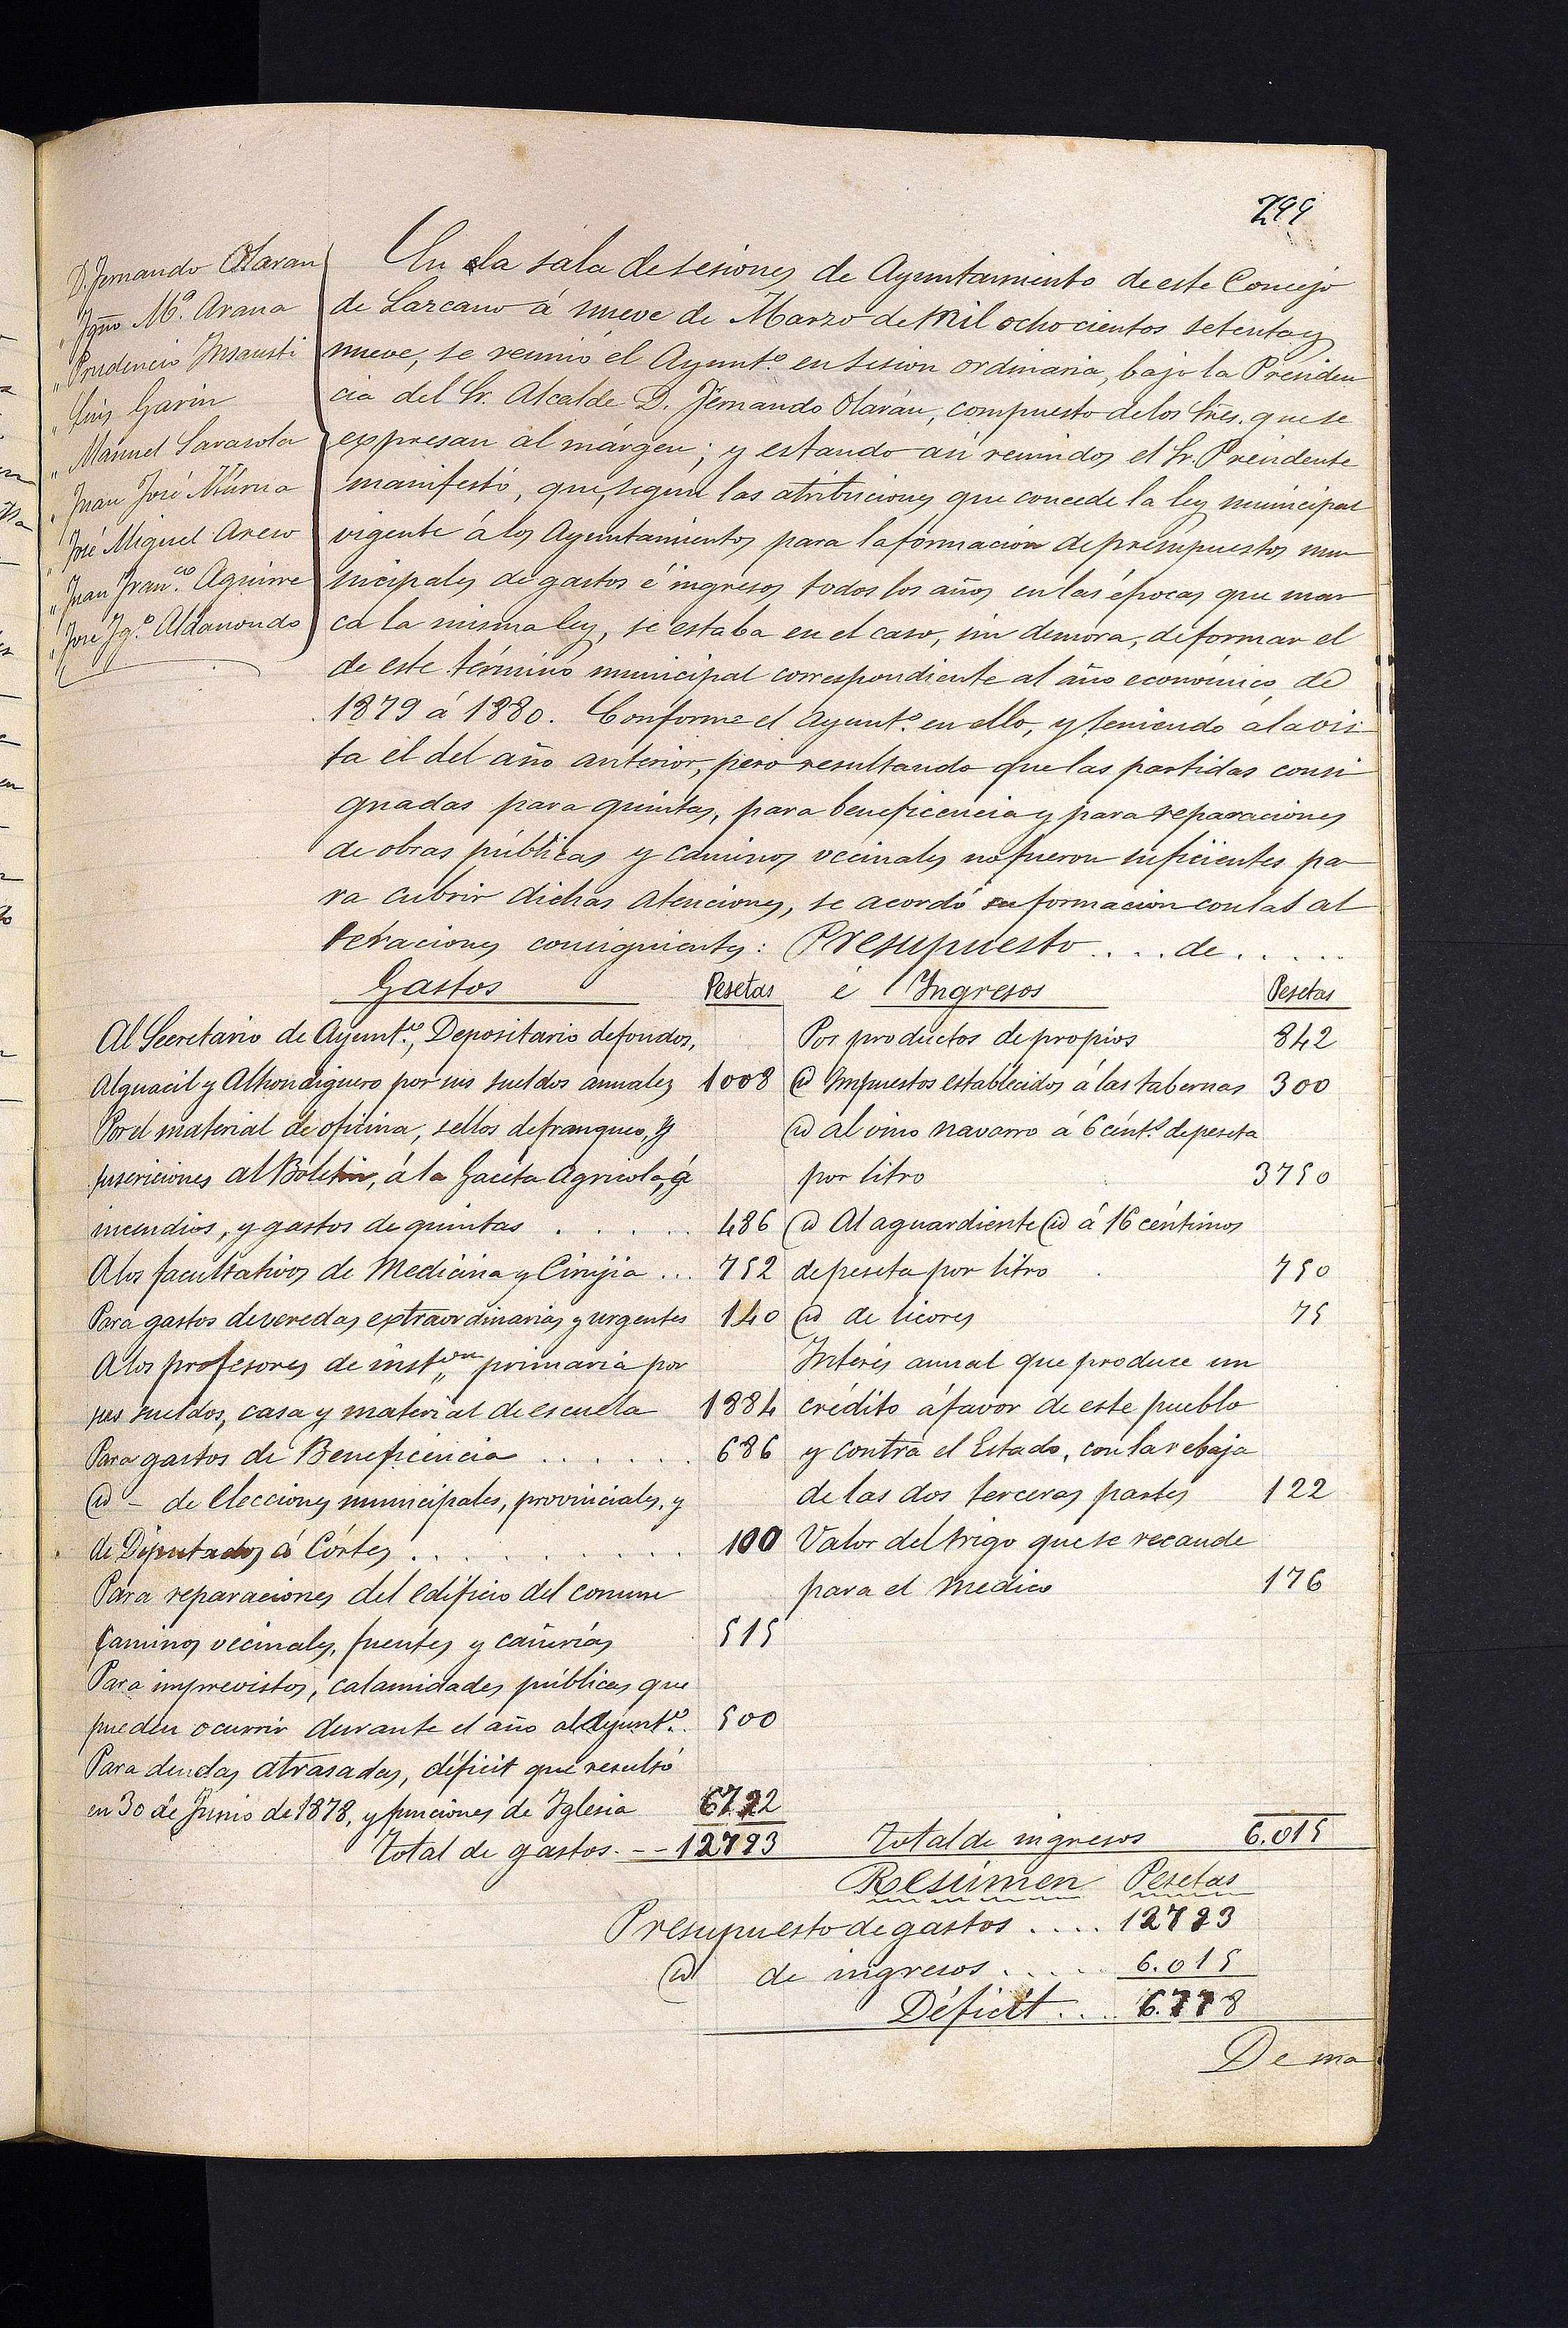 299
D. Fernando Olaran
" Ygno Mª. Arana
" Prudencio Insausti
" Luis Garin
" Manuel Sarasola
" Juan José Múrua
" José Miguel
" Juan Franco. Aguirre
" José Ygo. Aldanondo
En la sala de sesiones de Ayuntamiento de este Concejo
de Lazcano á nueve de Marzo de mil ochocientos setenta y
nueve, se reunió el Ayunto. en sesion ordinaria, bajo la Presiden
cia del Sr. Alcalde D. Fernando Olarán, compuesto de los Sres. que se
expresan al márgen; y estando así reunidos el Sr. Presidente
manifestó, que, segun las atribuciones que concede la ley municipal
vigente á los Ayuntamientos para la formacion de presupuestos mu
nicipales de gastos é ingresos todos los años en las épocas que mar
ca la misma ley, se estaba en el caso, sin demora, de formar el
de este término municipal correspondiente al año económico de
1879 á 1880. Conforme el Ayunto. en ello, y teniendo á la vis
ta el del año anterior, pero resultando que las partidas consi
gnadas para quintas, para beneficencia y para reparaciones
de obras públicas y caminos vecinales no fueron suficientes pa
ra cubrir dichas atenciones, se acordó su formacion con las al
teraciones consiguientes: Presupuesto .... de .....
Gastos Pesetas é Ingresos Pesetas
Al Secretario de Ayunto., Depositario de fondos,
Alguacil y Alhondiguero por sus sueldos anuales 1008
Por el material de oficina, sellos de franqueo, y
suscriciones al Boletin, á la Gaceta Agricola, á
incendios, y gastos de quintas ..... 486
A los facultativos de Medicina y Cirujía ... 752
Para gastos de veredas extraordinarias y urgentes 140
A los profesores de instcion primaria por
sus sueldos, casa y material de escuela 1884
Para gastos de Beneficencia ...... 686
id - de elecciones municipales, provinciales, y
de Diputados á Córtes ........ 100
Para reparaciones del edificio del comun
caminos vecinales, fuentes y cañerías 515
Para imprevistos, calamidades públicas que
pueden ocurrir durante el año al Ayunto. 500
Para deudas atrasadas, déficit que resultó
en 30 de Junio de 1878, y funciones de Yglesia 6722
Total de gastos. -- 12793
Por productos de propios 842
id Impuestos establecidos á las tabernas 300
id al vino navarro á 6 cénts. de peseta
por litro 3750
id Al aguardiente id á 16 céntimos
de peseta por litro 750
id de licores 75
Interés anual que produce un
crédito á favor de este pueblo
y contra el Estado, con la rebaja
de las dos terceras partes 122
Valor del trigo que se recaude
para el Médico 176
Total de ingresos 6.015
Resúmen Pesetas
Presupuesto de gastos .... 12793
id de ingresos ..... 6.015
Déficit .... 6.778
De ma